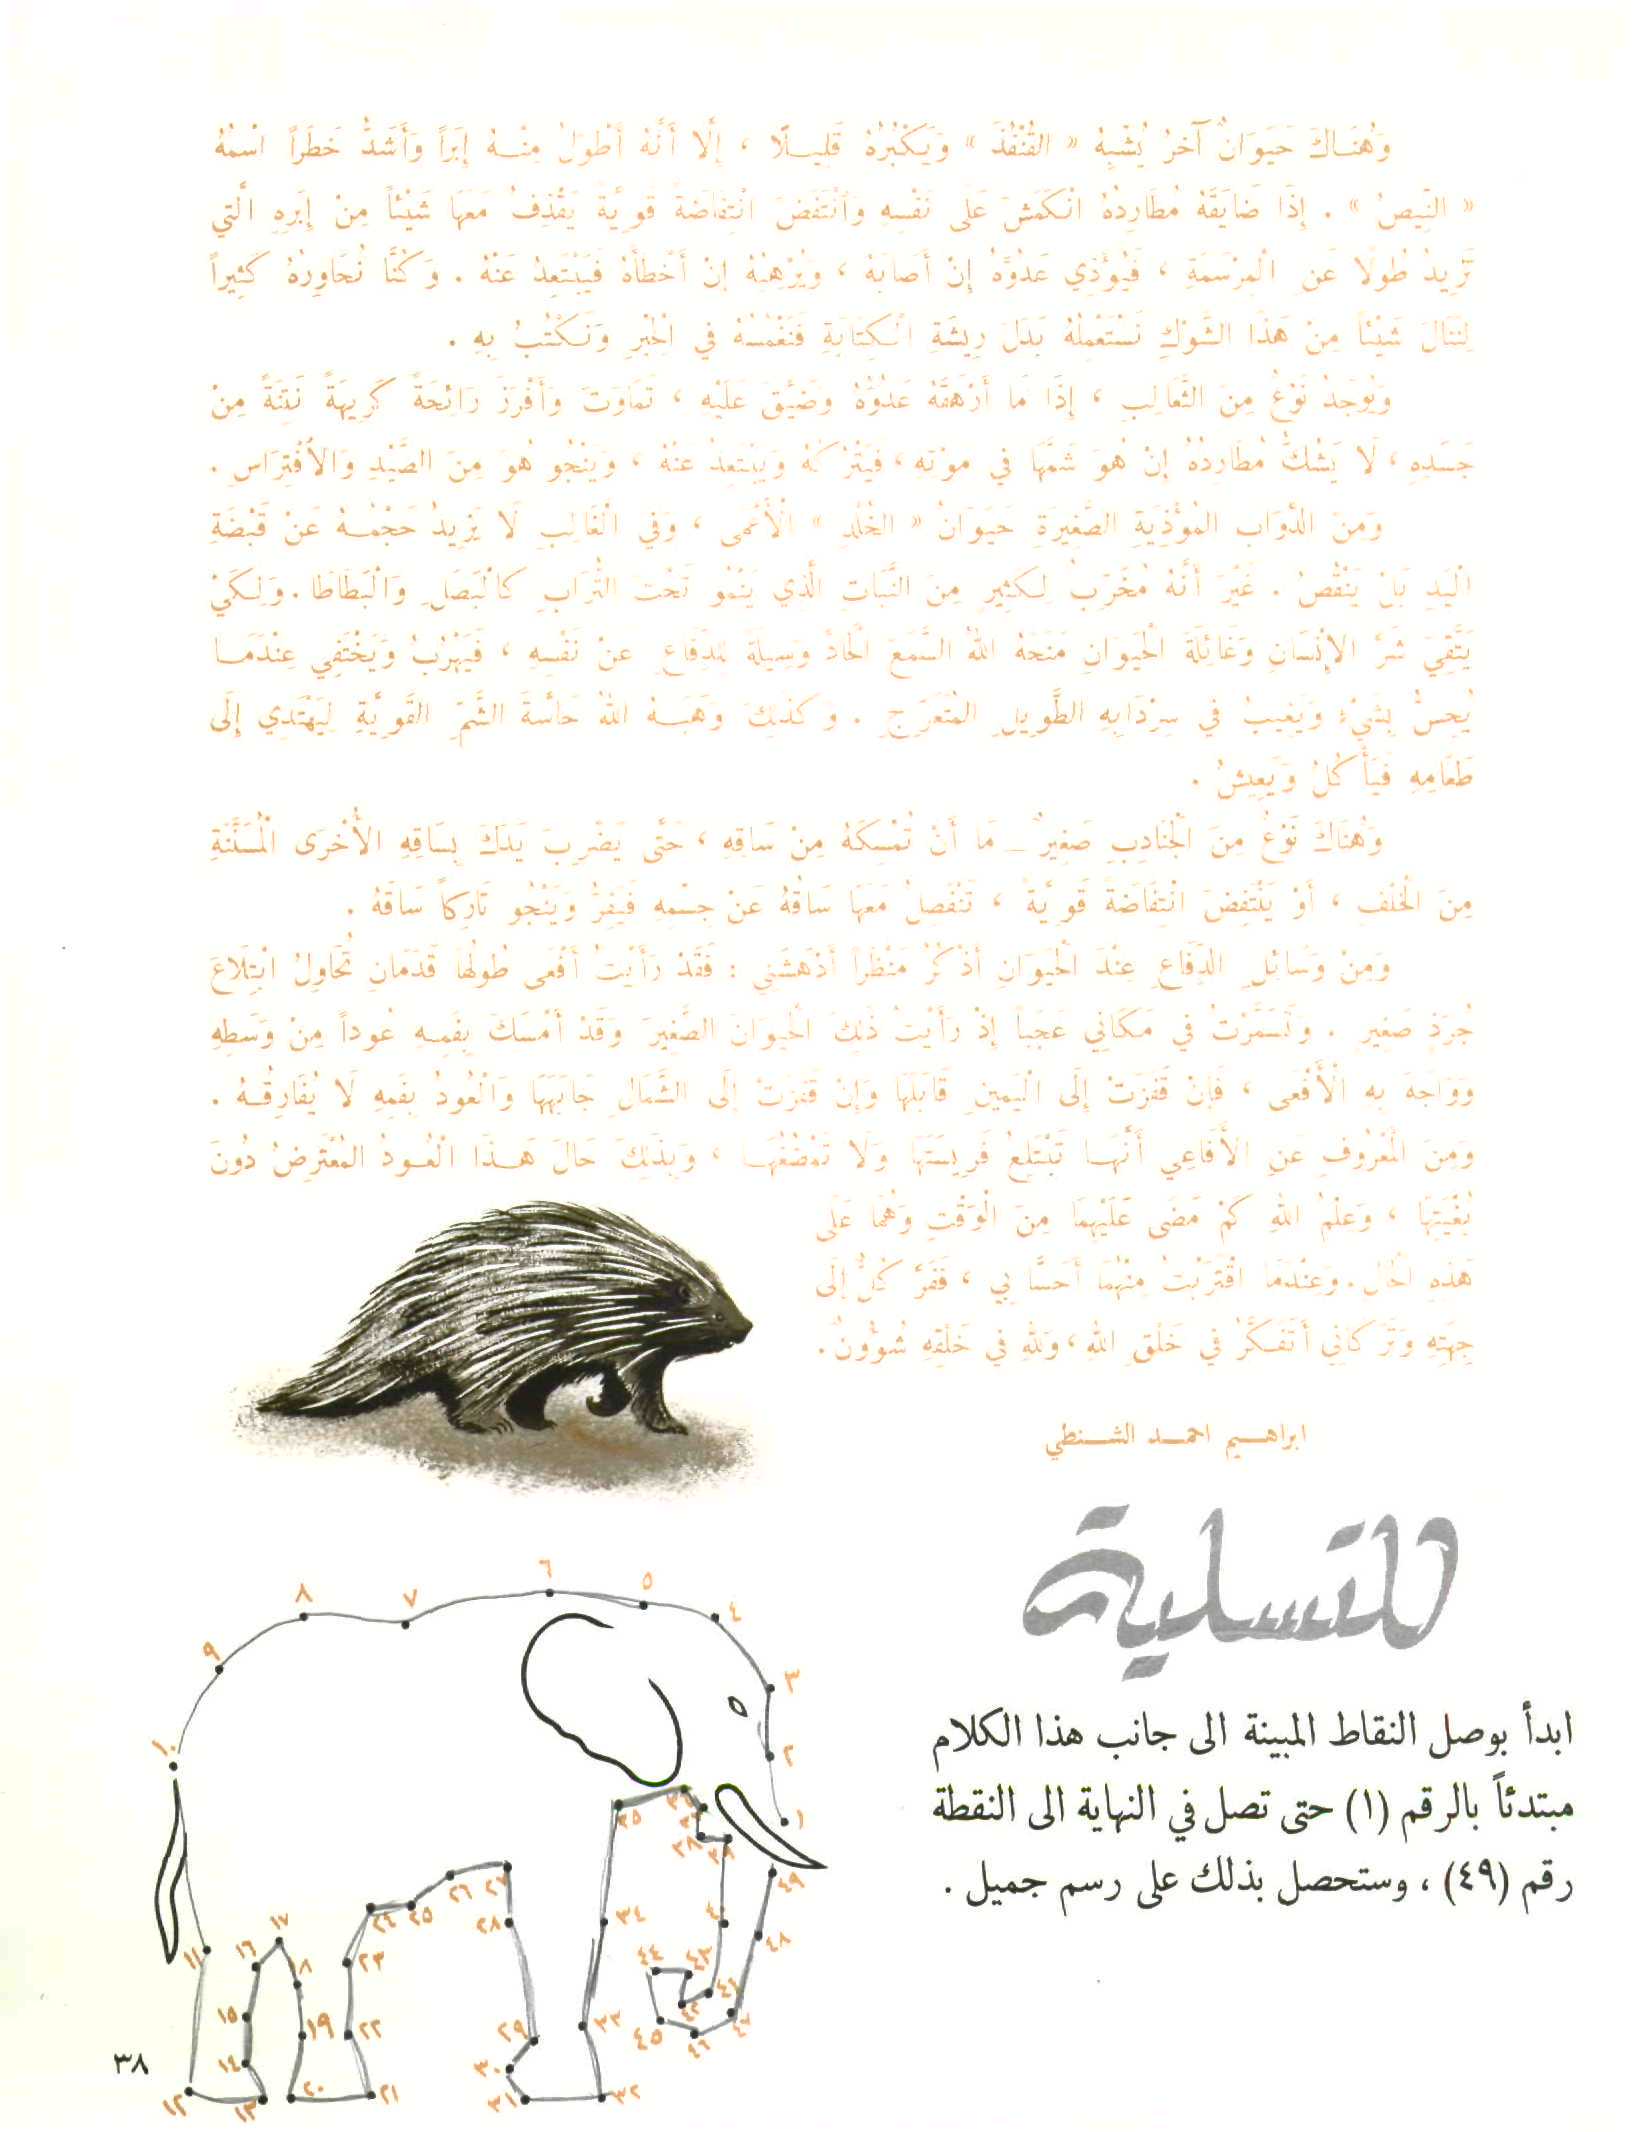 وَهُنَـاكَ حَيَوَانٌ آخَرُ يُشْبِهُ « القُنْفُذَ » وَيَكْبُرُهُ قَلِيــلًا ، إِلَّا أَنَّهُ أَطْوَلُ مِنْــهُ إِبَراً وَأَشَدُّ خَطَراً اسْمُهُ
« النِّيصُ » . إِذَا ضَايَقَهُ مُطَارِدُهُ انْكَمَشَ عَلَى نَفْسِهِ وَانْتَفَضَ انْتِفَاضَةً قَوِيَّةً يَقْذِفُ مَعَهَا شَيْئاً مِنْ إِبَرِهِ الَّتِي
تَزِيدُ طُولًا عَنِ الْمِرْسَمَةِ ، فَيُؤْذِي عَدُوَّهُ إِنْ أَصَابَهُ ، وَيُرْهِبُهُ إِنْ أَخْطَأَهُ فَيَبْتَعِدُ عَنْهُ . وَكُنَّا نُحَاوِرُهُ كَثِيراً
لِنَنَالَ شَيْئاً مِنْ هَذَا الشَّوْكِ نَسْتَعْمِلُهُ بَدَلَ رِيشَةِ الْكِتَابَةِ فَنَغْمِسُهُ فِي الْحِبْرِ وَنَكْتُبُ بِهِ .
وَيُوجَدُ نَوْعٌ مِنَ الثَّعَالِبِ ، إِذَا مَا أَرْهَقَهُ عَدُوُّهُ وَضَيَّقَ عَلَيْهِ ، تَمَاوَتَ وَأَفْرَزَ رَائِحَةً كَرِيهَةً نَتِنَةً مِنْ
جَسَدِهِ ، لَا يَشُكُّ مُطَارِدُهُ إِنْ هُوَ شَمَّهَا فِي مَوْتِهِ ، فَيَتْرُكُهُ وَيَبْتَعِدُ عَنْهُ ، وَيَنْجُو هُوَ مِنَ الصَّيْدِ وَالافْتِرَاسِ .
وَمِنَ الدَّوَابِ المُؤْذِيَةِ الصَّغِيرَةِ حَيَوَانُ « الخُلْدِ » الْأَعْمَى ، وَفِي الْغَالِبِ لَا يَزِيدُ حَجْمُــهُ عَنْ قَبْضَةِ
الْيَدِ بَلْ يَنْقُصُ . غَيْرَ أَنَّهُ مُخَرِّبٌ لِكَثِيرٍ مِنَ النَّبَاتِ الَّذِي يَنْمُو تَحْتَ التُّرَابِ كَالْبَصَلِ وَالْبَطَاطَا . وَلِكَيْ
يَتَّقِيَ شَرَّ الإِنْسَانِ وَغَائِلَةَ الْحَيَوَانِ مَنَحَهُ اللهُ السَّمْعَ الْحَادَّ وَسِيلَةً لِلدِّفَاعِ عَنْ نَفْسِهِ ، فَيَهْرُبُ وَيَخْتَفِي عِنْدَمَـا
يُحِسُّ بِشَيْءٍ وَيَغِيبُ فِي سِرْدَابِهِ الطَّوِيلِ المُتَعَرِّجِ . وَكَذَلِكَ وَهَبَـهُ اللهُ حَاسَّةَ الشَّمِّ القَوِيَّةِ لِيَهْتَدِي إِلَى
طَعَامِهِ فَيَأْكُلُ وَيَعِيشُ .
وَهُنَاكَ نَوْعٌ مِنَ الْجَنَادِبِ صَغِيرٌ ـ مَا أَنْ تُمْسِكَهُ مِنْ سَاقِهِ ، حَتَّى يَضْرِبَ يَدَكَ بِسَاقِهِ الأُخْرَى الْمُسَنَّنَةِ
مِنَ الْخَلْفِ ، أَوْ يَنْتَفِضَ انْتِفَاضَةً قَوِيَّةً ، تَنْفَصِلُ مَعَهَا سَاقُهُ عَنْ جِسْمِهِ فَيَفِرُّ وَيَنْجُو تَارِكاً سَاقَهُ .
وَمِنْ وَسَائِلِ الدِّفَاعِ عِنْدَ الْحَيَوَانِ أَذْكُرُ مَنْظَراً أَدْهَشَنِي : فَقَدْ رَأَيْتُ أَفْعَى طُولُهَا قَدَمَانِ تُحَاوِلُ ابْتِلَاعَ
جُرَذٍ صَغِيرٍ . وَتَسَمَّرْتُ فِي مَكَانِي عَجَباً إِذْ رَأَيْتُ ذَلِكَ الْحَيَوَانَ الصَّغِيرَ وَقَدْ أَمْسَكَ بِفَمِـهِ عُوداً مِنْ وَسَطِهِ
وَوَاجَهَ بِهِ الْأَفْعَى ، فَإِنْ قَفَزَتْ إِلَى الْيَمِينِ قَابَلَهَا وَإِنْ قَفَزَتْ إِلَى الشَّمَالِ جَابَهَهَا وَالْعُودُ بِفَمِهِ لَا يُفَارِقُـهُ .
وَمِنَ الْمَعْرُوفِ عَنِ الأَفَاعِي أَنَّهَـا تَبْتَلِعُ فَرِيسَتَهَا وَلَا تَمْضُغُهَـا ، وَبِذَلِكَ حَالَ هَـذَا الْعُـودُ المُعْتَرِضُ دُونَ
بُغْيَتِهَا ، وَعَلِمَ اللهُ كَمْ مَضَى عَلَيْهِمَا مِنَ الْوَقْتِ وَهُمَا عَلَى
هَذِهِ الْحَالِ . وَعِنْدَمَا اقْتَرَبْتُ مِنْهُمَا أَحَسَّا بِي ، فَفَرَّ كُلٌّ إِلَى
جِهَتِهِ وَتَرَكَانِي أَتَفَكَّرُ فِي خَلْقِ اللهِ ، وَللهِ فِي خَلْقِهِ شُؤُونٌ .
ابراهـيم احمـد الشـنطي
للتسلية
ابدأ بوصل النقاط المبينة الى جانب هذا الكلام
مبتدئاً بالرقم (١) حتى تصل في النهاية الى النقطة
رقم (٤٩) ، وستحصل بذلك على رسم جميل .
١
٢
٣
٤
٥
٦
٧
٨
٩
١٠
١١
١٢
١٣
١٤
١٥
١٦
١٧
١٨
١٩
٢٠
٢١
٢٢
٢٣
٢٤
٢٥
٢٦
٢٧
٢٨
٢٩
٣٠
٣١
٣٢
٣٣
٣٤
٣٥
٣٦
٣٨
٣٩
٤٠
٤١
٤٢
٤٣
٤٤
٤٥
٤٦
٤٧
٤٨
٤٩
٣٨